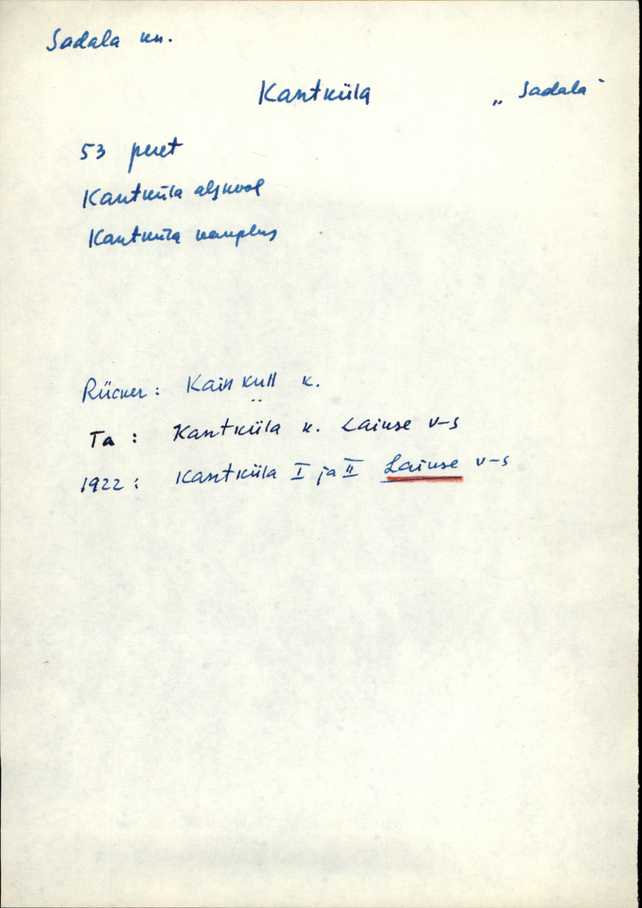 Sadala kn.
Kantküla „Sadala"
53 peret
Kantküla algkool
Kantküla kauplus
Rücker: Kain Kull k.
Ta: Kantküla k. Laiuse v-s
1922: Kantküla I ja II Laiuse v-s